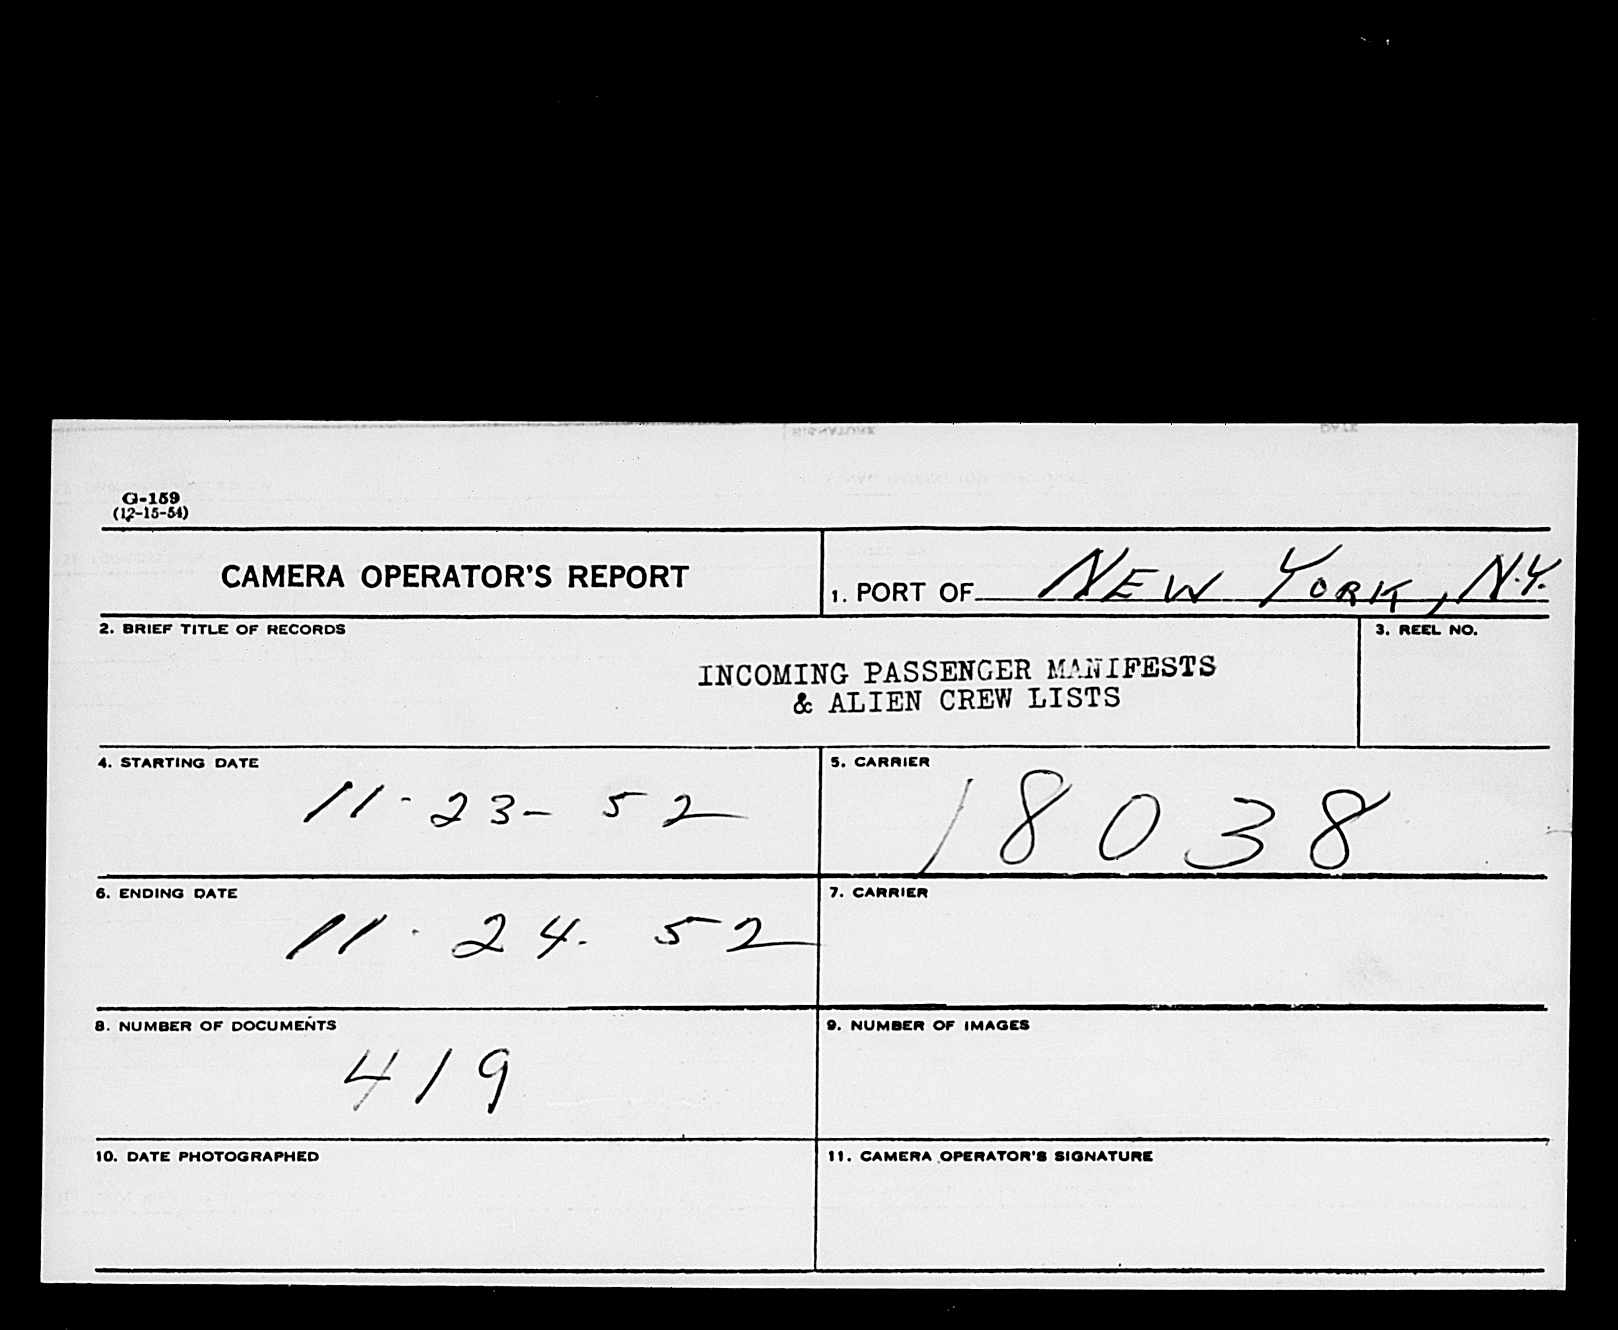 G-159
(12-15-54)
CAMERA OPERATOR'S REPORT
1. PORT OF NEW YORK, N.Y.
2. BRIEF TITLE OF RECORDS
INCOMING PASSENGER MANIFESTS
& ALIEN CREW LISTS
3. REEL NO.
4. STARTING DATE
11-23-52
5. CARRIER
18038
6. ENDING DATE
11-24-52
7. CARRIER
8. NUMBER OF DOCUMENTS
419
9. NUMBER OF IMAGES
10. DATE PHOTOGRAPHED
11. CAMERA OPERATOR'S SIGNATURE